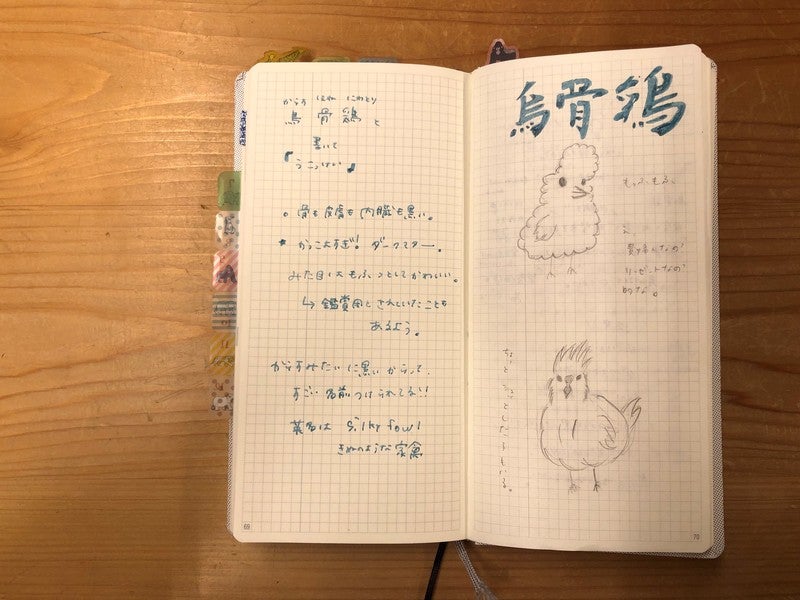 からす ほね にわとり
烏 骨 鶏 と
書いて
『うこっけい』
骨も皮膚も内臓も黒い。
かっこよすぎ！ ダークマター。
みた目はもふっとしてかわいい。
↳ 鑑賞用とされていたことも
あるよう。
からすみたいに黒いからって、
すごい名前つけられてる!!
英名は Silky fowl
きぬのような家禽
69
烏骨鶏
もっふもふ、
え、
貴婦人なの?
的な。
ちょっと
としたコもいる。
70